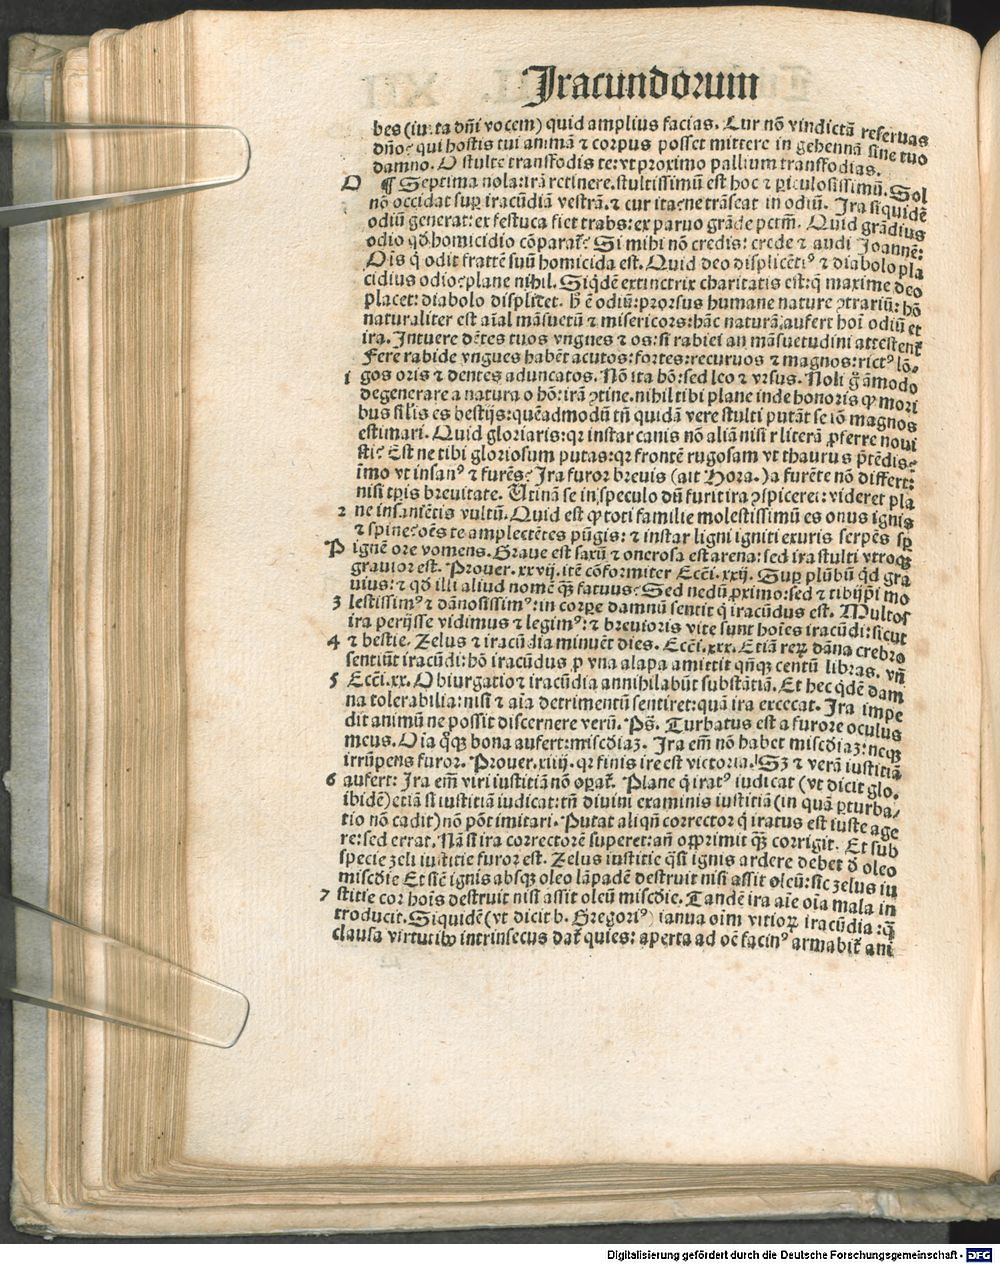 Iracundorum
bes (iuxta dñi vocem) quid amplius facias. Cur nõ vindictã reseruas
dño: qui hostis tui animã ⁊ corpus posset mittere in gehennã sine tuo
damno. O stulte transfodis te: vt proximo pallium transfodias.
O ¶ Septima nola: irã retinere. stultissimũ est hoc ⁊ ꝑiculosissimũ. Sol
nõ occidat suꝑ iracũdiã vestrã. ⁊ cur ita: ne trãseat in odiũ. Ira siquidẽ
odiũ generat: ex festuca fiet trabs: ex paruo grãde pctm̃. Quid grãdius
odio qđ homicidio cõparat᷑? Si mihi nõ credis: crede ⁊ audi Joannẽ:
Oĩs q̇ odit frattẽ suũ homicida est. Quid deo displicẽtiꝰ ⁊ diabolo pla
cidius odio: plane nihil. Siqđẽ extinctrix charitatis est: q̃ maxime deo
placet: diabolo displicet. Hʼ ẽ odiũ: prorsus humane nature ꝯtrariũ: hõ
naturaliter est aĩal mãsuetũ ⁊ misericors: hãc naturã aufert hoĩ odiũ et
ira. Intuere dẽtes tuos vngues ⁊ os: si rabiei an mãsuetudini attestent᷑
Fere rabide vngues habẽt acutos: fortes: recuruos ⁊ magnos: rictꝰ lõ-
1 gos oris ⁊ dentes aduncatos. Nõ ita hõ: sed leo ⁊ vrsus. Noli q̃ãmodo
degenerare a natura o hõ: irã ꝯtine. nihil tibi plane inde honoris ꝙ mori
bus sĩlis es bestijs: quẽadmodũ tñ quidã vere stulti putãt se iõ magnos
estimari. Quid gloriaris: qꝛ instar canis nõ aliã nisi r literã ꝓferre noui
sti? Est ne tibi gloriosum putas: qꝛ frontẽ rugosam vt thaurus p̃tẽdis:
ĩmo vt insanꝰ ⁊ furẽs? Ira furor brevis (ait Hora.) a furẽte nõ differt:
nisi tp̃is breuitate. Utinã se in speculo dũ furit ira ꝯspiceret: videret pla
2 ne insaniẽtis vultũ. Quid est ꝙ toti familie molestissimũ es onus ignis
⁊ spine? oẽs te amplectẽtes pũgis: ⁊ instar ligni igniti exuris serpẽs sꝑ
P ignẽ ore vomens. Graue est saxũ ⁊ onerosa est arena: sed ira stulti vtroqꝫ
grauior est. Prouer. xxvij. itẽ cõformiter Ecci. xxij. Suꝑ plũbũ qđ gra
uius: ⁊ qđ illi aliud nomẽ qꝫ fatuus? Sed nedũ ꝓximo: sed ⁊ tibijp̃i mo
3 lestissimꝰ ⁊ dãnosissimꝰ: in corꝑe damnũ sentit q̇ iracũdus est. Multos
ira perijsse vidimus ⁊ legimꝰ: ⁊ breuioris vite sunt hoĩes iracũdi: sicut
4 ⁊ bestie. Zelus ⁊ iracũdia minuẽt dies. Ecci. xxx. Etiã reꝝ dãna crebro
sentiũt iracũdi: hõ iracũdus ꝑ vna alapa amittit qñqꝫ centũ libras. vñ
5 Ecci. xx. Obiurgatio ⁊ iracũdia annihilabũt substãtiã. Et hec qđẽ dam
na tolerabilia: nisi ⁊ aĩa detrimentũ sentiret: quã ira excecat. Ira impe
dit animũ ne possit discernere verũ. Ps̃. Turbatus est a furore oculus
meus. Oĩa q̊qꝫ bona aufert: misc̃diaꝫ. Ira em̃ nõ habet misc̃diaꝫ: neqꝫ
irrũpens furor. Prouer. xiiij. qꝛ finis ire est victoria. Sꝫ ⁊ verã iustitiã
6 aufert: Ira em̃ viri iustitiã nõ oꝑat᷑. Plane q̇ iratꝰ iudicat (vt dicit glo.
ibidẽ) etiã si iustitiã iudicat: tñ diuini examinis iustitiã (in quã ꝑturba-
tio nõ cadit) nõ põt imitari. Putat aliqñ corrector q̇ iratus est iuste age
re: sed errat. Nã si ira correctorẽ superet: añ opprimit qꝫ corrigit. Et sub
specie zeli iustitie furor est. Zelus iustitie q̃si ignis ardere debet đ oleo
misc̃die Et siẽ ignis absqꝫ oleo lãpadẽ destruit nisi assit oleũ: sic zelus iu
7 stitie cor hoĩs destruit nisi assit oleũ misc̃die. Tandẽ ira aĩe oĩa mala in
troducit. Siquidẽ (vt dicit b. Gregoriꝰ) ianua oĩm vitioꝝ iracũdia: q̃
clausa virtutibꝰ intrinsecus dat᷑ quies: aperta ad oẽ facinꝰ armabit᷑ ani
Digitalisierung gefördert durch die Deutsche Forschungsgemeinschaft - DFG